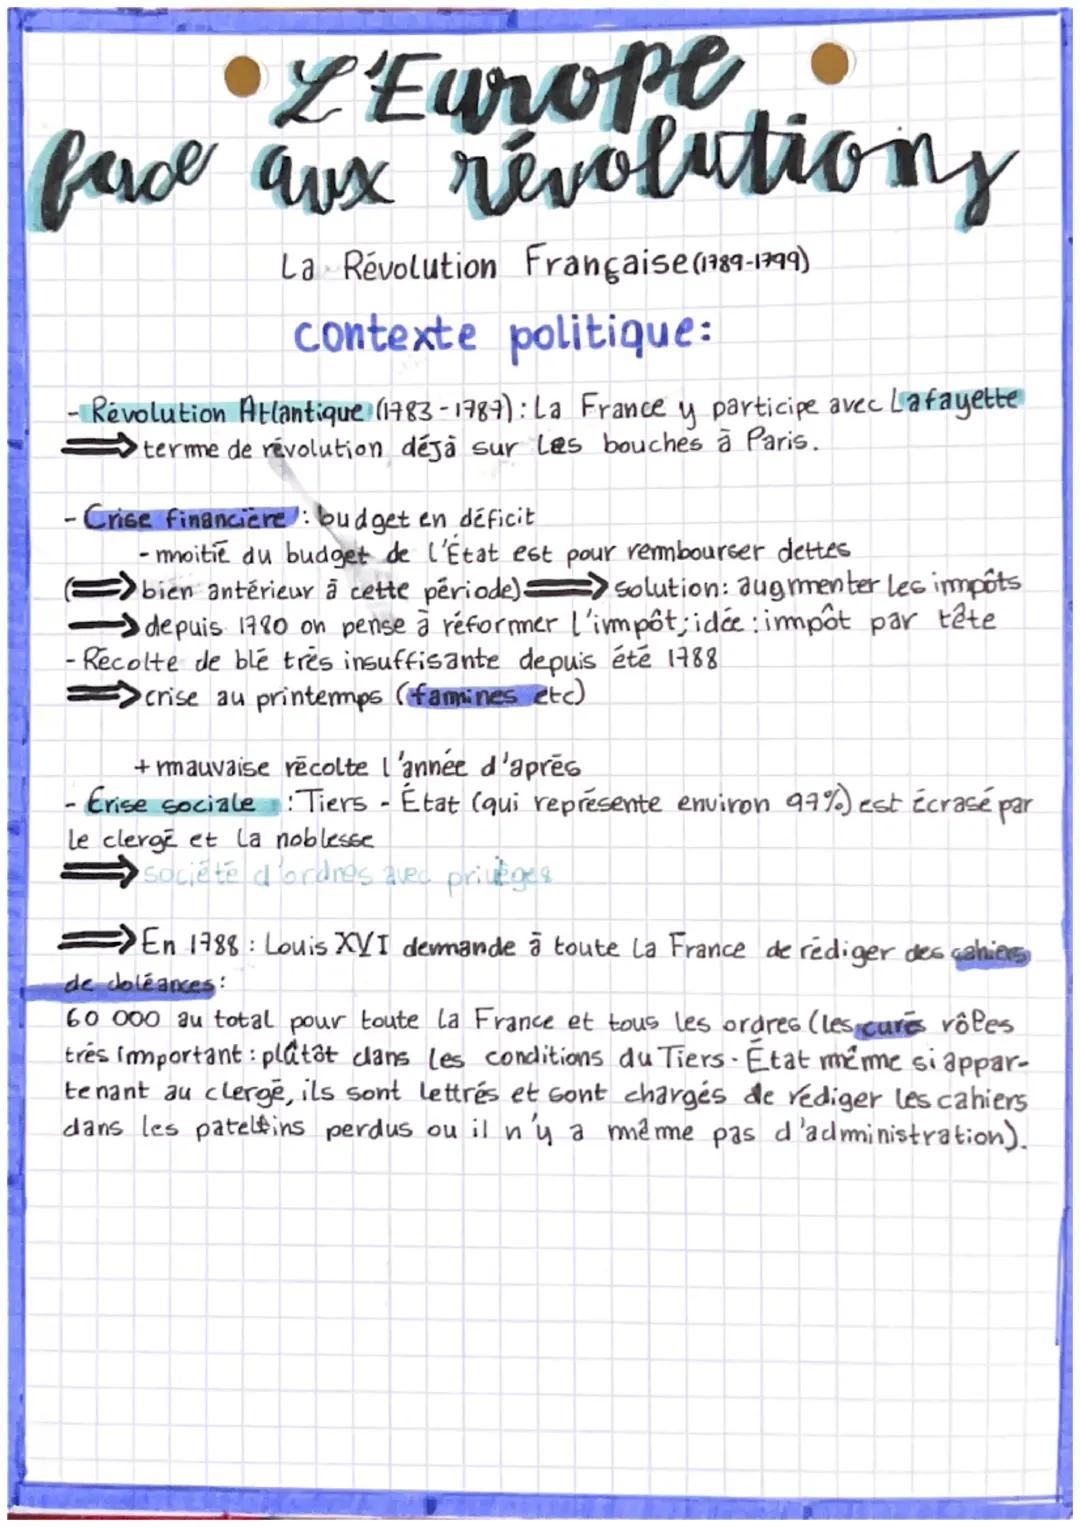 L'Europe
face aux révolutions
La Révolution Française (1789-1799)
contexte politique:
- Révolution Atlantique (1783-1787): La France y participe avec Lafayette
⇒ terme de révolution déjà sur les bouches à Paris.
- Crise financière : budget en déficit
- moitié du budget de l'État est pour rembourser dettes
(⇒ bien antérieur à cette période) ⇒ solution: augmenter les impôts
→ depuis 1780 on pense à réformer l'impôt; idée : impôt par tête
- Récolte de blé très insuffisante depuis été 1788
⇒ crise au printemps (famines etc)
+ mauvaise récolte l'année d'après
- Crise sociale : Tiers - État (qui représente environ 97%) est écrasé par
le clergé et la noblesse
⇒ société d'ordres avec priièges
⇒ En 1788 : Louis XVI demande à toute la France de rédiger des cahiers
de doléances :
60 000 au total pour toute la France et tous les ordres (les curés rôles
très important : plutôt dans les conditions du Tiers - État même si appar-
tenant au clergé, ils sont lettrés et sont chargés de rédiger les cahiers
dans les patelins perdus ou il n'y a même pas d'administration).